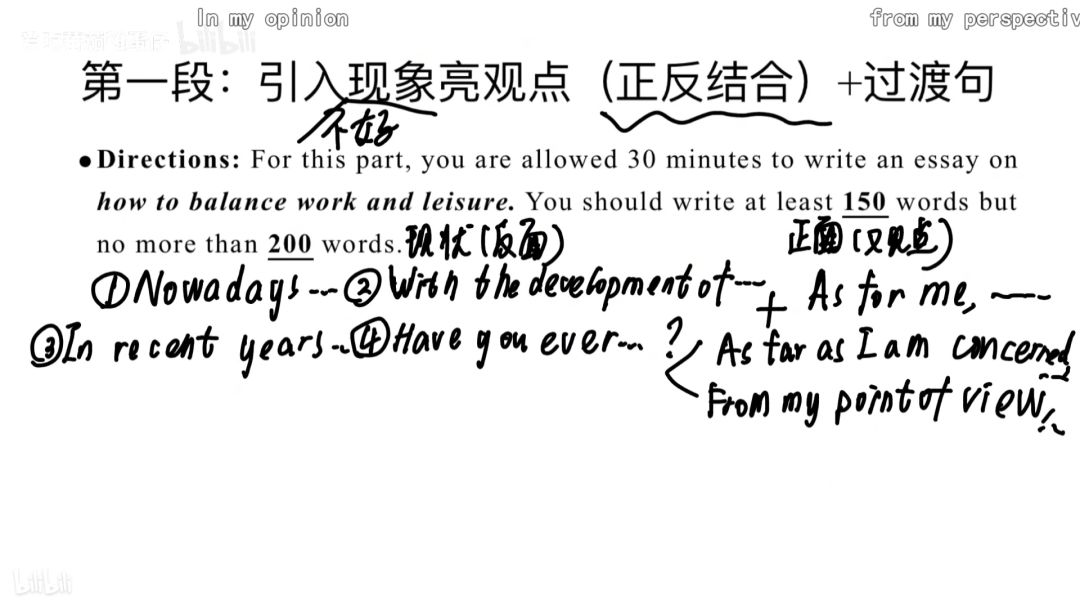 In my opinion
from my perspectiv
bilibili
第一段：引入现象亮观点（正反结合）+过渡句
不好
●Directions: For this part, you are allowed 30 minutes to write an essay on
how to balance work and leisure. You should write at least 150 words but
no more than 200 words. 现状(反面) 正面(义观点)
①Nowadays... ②With the development of... + As for me, ——
③In recent years... ④Have you ever...? As far as I am concerned...
From my point of view,...
bilibili